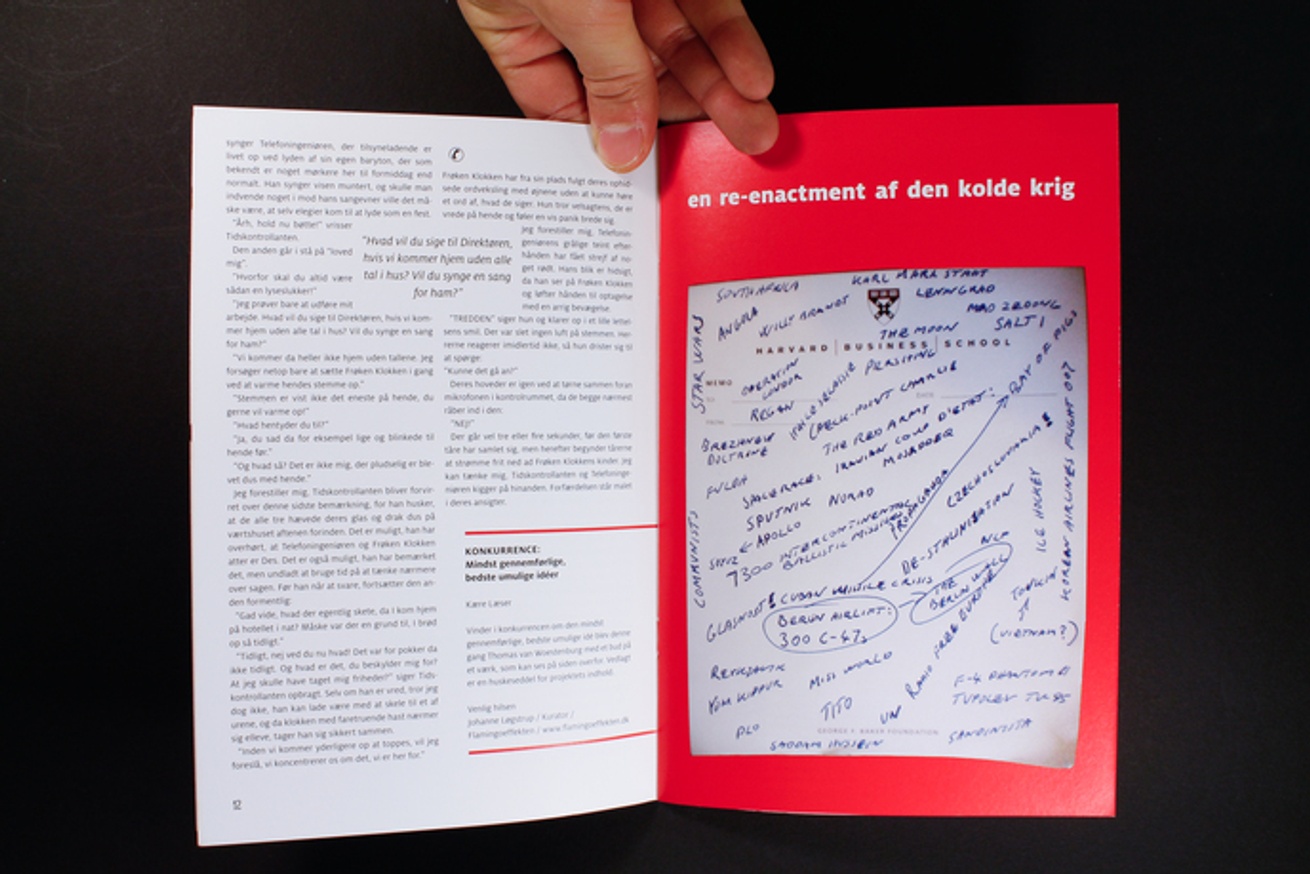 synger Telefoningeniøren, der tilsyneladende er
livet op ved lyden af sin egen baryton, der som
bekendt er noget mørkere her til formiddag end
normalt. Han synger visen muntert, og skulle man
indvende noget i mod hans sangevner ville det må-
ske være, at selv elegier kom til at lyde som en fest.
"Årh, hold nu bøtte!" vrisser
Tidskontrollanten.
Den anden går i stå på "loved
mig".
"Hvorfor skal du altid være
sådan en lyseslukker!"
"Jeg prøver bare at udføre mit
arbejde. Hvad vil du sige til Direktøren, hvis vi kom-
mer hjem uden alle tal i hus? Vil du synge en sang
for ham?"
"Vi kommer da heller ikke hjem uden tallene. Jeg
forsøger netop bare at sætte Frøken Klokken i gang
ved at varme hendes stemme op."
"Stemmen er vist ikke det eneste på hende, du
gerne vil varme op!"
"Hvad hentyder du til?"
"Ja, du sad da for eksempel lige og blinkede til
hende før."
"Og hvad så? Det er ikke mig, der pludselig er ble-
vet dus med hende."
Jeg forestiller mig, Tidskontrollanten bliver forvir-
ret over denne sidste bemærkning, for han husker,
at de alle tre hævede deres glas og drak dus på
værtshuset aftenen forinden. Det er muligt, han har
overhørt, at Telefoningeniøren og Frøken Klokken
atter er Des. Det er også muligt, han har bemærket
det, men undladt at bruge tid på at tænke nærmere
over sagen. Før han når at svare, fortsætter den an-
den formentlig:
"Gad vide, hvad der egentlig skete, da I kom hjem
på hotellet i nat? Måske var der en grund til, I brød
op så tidligt."
"Tidligt, nej ved du nu hvad! Det var for pokker da
ikke tidligt. Og hvad er det, du beskylder mig for?
At jeg skulle have taget mig friheder?" siger Tids-
kontrollanten opbragt. Selv om han er vred, tror jeg
dog ikke, han kan lade være med at skele til et af
urene, og da klokken med faretruende hast nærmer
sig elleve, tager han sig sikkert sammen.
"Inden vi kommer yderligere op at toppes, vil jeg
foreslå, vi koncentrerer os om det, vi er her for."
12
Frøken Klokken har fra sin plads fulgt deres ophid-
sede ordveksling med øjnene uden at kunne høre
et ord af, hvad de siger. Hun tror velsagtens, de er
vrede på hende og føler en vis panik brede sig.
Jeg forestiller mig, Telefonin-
geniørens grålige teint efter-
hånden har fået strejf af no-
get rødt. Hans blik er hidsigt,
da han ser på Frøken Klokken
og løfter hånden til optagelse
med en arrig bevægelse.
"Hvad vil du sige til Direktøren,
hvis vi kommer hjem uden alle
tal i hus? Vil du synge en sang
for ham?"
"TREDDEN" siger hun og klarer op i et lille lettel-
sens smil. Der var slet ingen luft på stemmen. Her-
rerne reagerer imidlertid ikke, så hun drister sig til
at spørge:
"Kunne det gå an?"
Deres hoveder er igen ved at tørne sammen foran
mikrofonen i kontrolrummet, da de begge nærmest
råber ind i den:
"NEJ!"
Der går vel tre eller fire sekunder, før den første
tåre har samlet sig, men herefter begynder tårerne
at strømme frit ned ad Frøken Klokkens kinder. Jeg
kan tænke mig, Tidskontrollanten og Telefoninge-
niøren kigger på hinanden. Forfærdelsen står malet
i deres ansigter.
KONKURRENCE:
Mindst gennemførlige,
bedste umulige idéer
Kære Læser
Vinder i konkurrencen om den mindst
gennemførlige, bedste umulige idé blev denne
gang Thomas van Woestenburg med et bud på
et værk, som kan ses på siden overfor. Vedlagt
er en huskeseddel for projektets indhold.
Venlig hilsen
Johanne Løgstrup / Kurator /
Flamingoeffekten / www.flamingoeffekten.dk
en re-enactment af den kolde krig
SOUTH AFRICA
KARL MARX STADT
LENINGRAD
MAO ZEDONG
ANGOLA
WILLY BRANDT
THE MOON
SALT I
HARVARD | BUSINESS | SCHOOL
STAR WARS
MEMO
OPERATION
CONDOR
HAILE SELASSIE
PERSHING
BAY OF PIGS
REGAN
CHECK-POINT CHARLIE
BREZHNEV
DOCTRINE
THE RED ARMY
IRANIAN COUP D'ETAT:
MOSADDEQ
FULDA
SPACE RACE:
SPUTNIK
NORAD
& APOLLO
PROPAGANDA
CZECHOSLOVAKIA!
7300 INTERCONTINENTAL
BALLISTIC MISSILES
DE-STALINISATION
ICE HOCKEY
KOREAN AIRLINES FLIGHT 007
COMMUNISTS
GLASNOST!
CUBAN MISSILE CRISIS
BERLIN AIRLIFT:
300 C-47s
THE
BERLIN WALL
TONKIN
(VIETNAM?)
RADIO FREE EUROPE
REYKJAVIK
YOM KIPPUR
MISS WORLD
F-4 PHANTOM II
TUPOLEV TU-95
TITO
UN
PLO
SANDINISTA
GEORGE F. BAKER FOUNDATION
SADDAM HUSSEIN